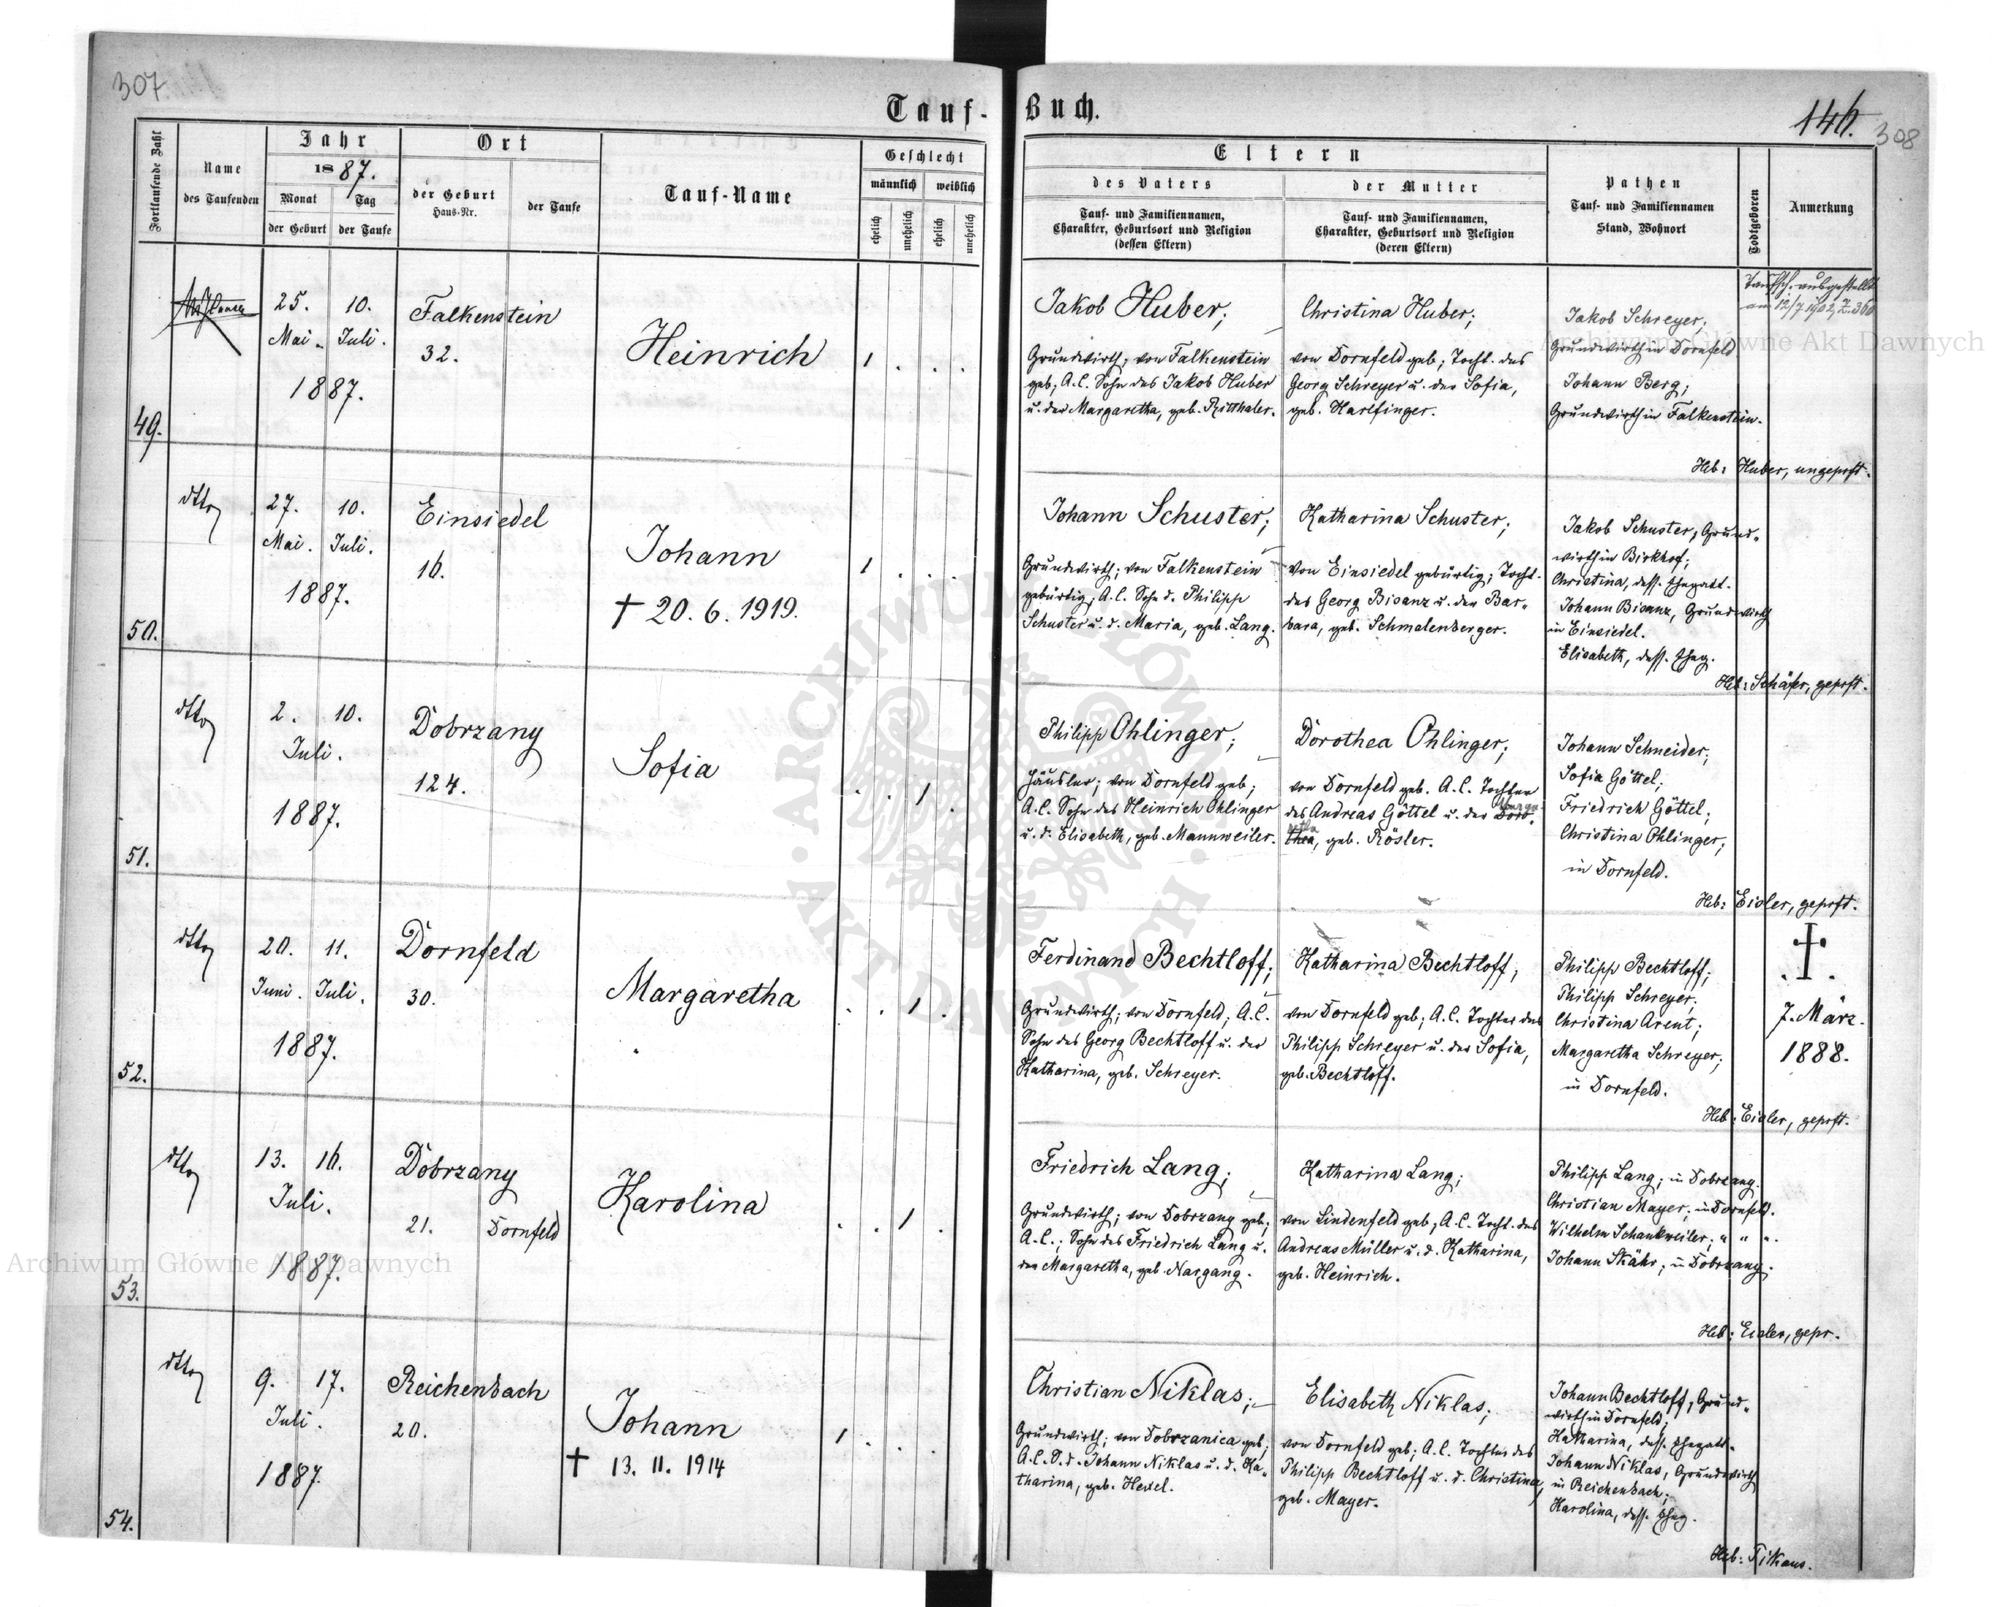 307
Tauf-Buch.
146.
308
Fortlaufende Zahl
Name
des Taufenden
Jahr
1887.
Monat
Tag
der Geburt
der Taufe
Ort
der Geburt
Haus-Nr.
der Taufe
Tauf-Name
Geschlecht
männlich
weiblich
ehelich
unehelich
ehelich
unehelich
Eltern
des Vaters
Tauf- und Familiennamen,
Charakter, Geburtsort und Religion
(dessen Eltern)
der Mutter
Tauf- und Familiennamen,
Charakter, Geburtsort und Religion
(deren Eltern)
Pathen
Tauf- und Familiennamen
Stand, Wohnort
Todtgeboren
Anmerkung
49.
25. 10.
Mai. Juli.
1887.
Falkenstein
32.
Heinrich
1 . . .
Jakob Huber;
Grundwirth; von Falkenstein
geb; A.C. Sohn des Jakob Huber
u. der Margaretha, geb. Ritthaler.
Christina Huber;
von Dornfeld geb; Tocht. des
Georg Schreyer u. der Sofia,
geb. Harlfinger.
Jakob Schreyer;
Grundwirth in Dornfeld
Johann Berg;
Grundwirth in Falkenstein.
Taufsch. ausgestellt
am 12/7 1902, Z. 360
Heb: Huber, ungeprft.
50.
dtto
27. 10.
Mai. Juli.
1887.
Einsiedel
16.
Johann
† 20. 6. 1919.
1 . . .
Johann Schuster;
Grundwirth; von Falkenstein
gebürtig; A.C. Sohn d. Philipp
Schuster u. d. Maria, geb. Lang.
Katharina Schuster;
von Einsiedel gebürtig; Tocht.
des Georg Bisanz u. der Bar-
bara, geb. Schmalenberger.
Jakob Schuster, Grund-
wirth in Birkhof;
Christina, dess. Ehegatt.
Johann Bisanz, Grundwirth
in Einsiedel.
Elisabeth, dess. Eheg.
Heb: Schäfer, geprft.
51.
dtto
2. 10.
Juli.
1887.
Dobrzany
124.
Sofia
. . 1 .
Philipp Ohlinger;
Häusler; von Dornfeld geb;
A.C. Sohn des Heinrich Ohlinger
u. d. Elisabeth, geb. Mannweiler.
Dorothea Ohlinger;
von Dornfeld geb. A.C. Tochter
des Andreas Göttel u. der Doro-
thea, geb. Rösler.
Johann Schneider;
Sofia Göttel;
Friedrich Göttel;
Christina Ohlinger;
in Dornfeld.
Heb: Eisler, geprft.
52.
dtto
20. 11.
Juni. Juli.
1887.
Dornfeld
30.
Margaretha
. . 1 .
Ferdinand Bechtloff;
Grundwirth; von Dornfeld; A.C.
Sohn des Georg Bechtloff u. der
Katharina, geb. Schreyer.
Katharina Bechtloff;
von Dornfeld geb; A.C. Tochter des
Philipp Schreyer u. der Sofia,
geb. Bechtloff.
Philipp Bechtloff;
Philipp Schreyer;
Christina Arent;
Margaretha Schreyer;
in Dornfeld.
†
7. März.
1888.
Heb: Eisler, geprft.
53.
dtto
13. 16.
Juli.
1887.
Dobrzany
21. Dornfeld
Karolina
. . 1 .
Friedrich Lang;
Grundwirth; von Dobrzany geb;
A.C.; Sohn des Friedrich Lang u.
der Margaretha, geb. Nargang.
Katharina Lang;
von Lindenfeld geb; A.C. Tocht. des
Andreas Müller u. d. Katharina,
geb. Heinrich.
Philipp Lang; in Dobrzany.
Christian Mayer; in Dornfeld.
Wilhelm Schankweiler; " " ".
Johann Skähr; in Dobrzany.
Heb: Eisler, gepr.
54.
dtto
9. 17.
Juli.
1887.
Reichenbach
20.
Johann
† 13. 11. 1914
1 . . .
Christian Niklas;
Grundwirth; von Dobrzanica geb;
A.C. S.d. Johann Niklas u. d. Ka-
tharina, geb. Hexel.
Elisabeth Niklas;
von Dornfeld geb; A.C. Tochter des
Philipp Bechtloff u. d. Christina,
geb. Mayer.
Johann Bechtloff, Grund-
wirth in Dornfeld;
Katharina, dess. Ehegatt.
Johann Niklas, Grundwirth
in Reichenbach;
Karolina, dess. Eheg.
Heb: Filkaus.
Archiwum Główne Akt Dawnych
Archiwum Główne Akt Dawnych
ARCHIWUM GŁÓWNE · AKT DAWNYCH ·